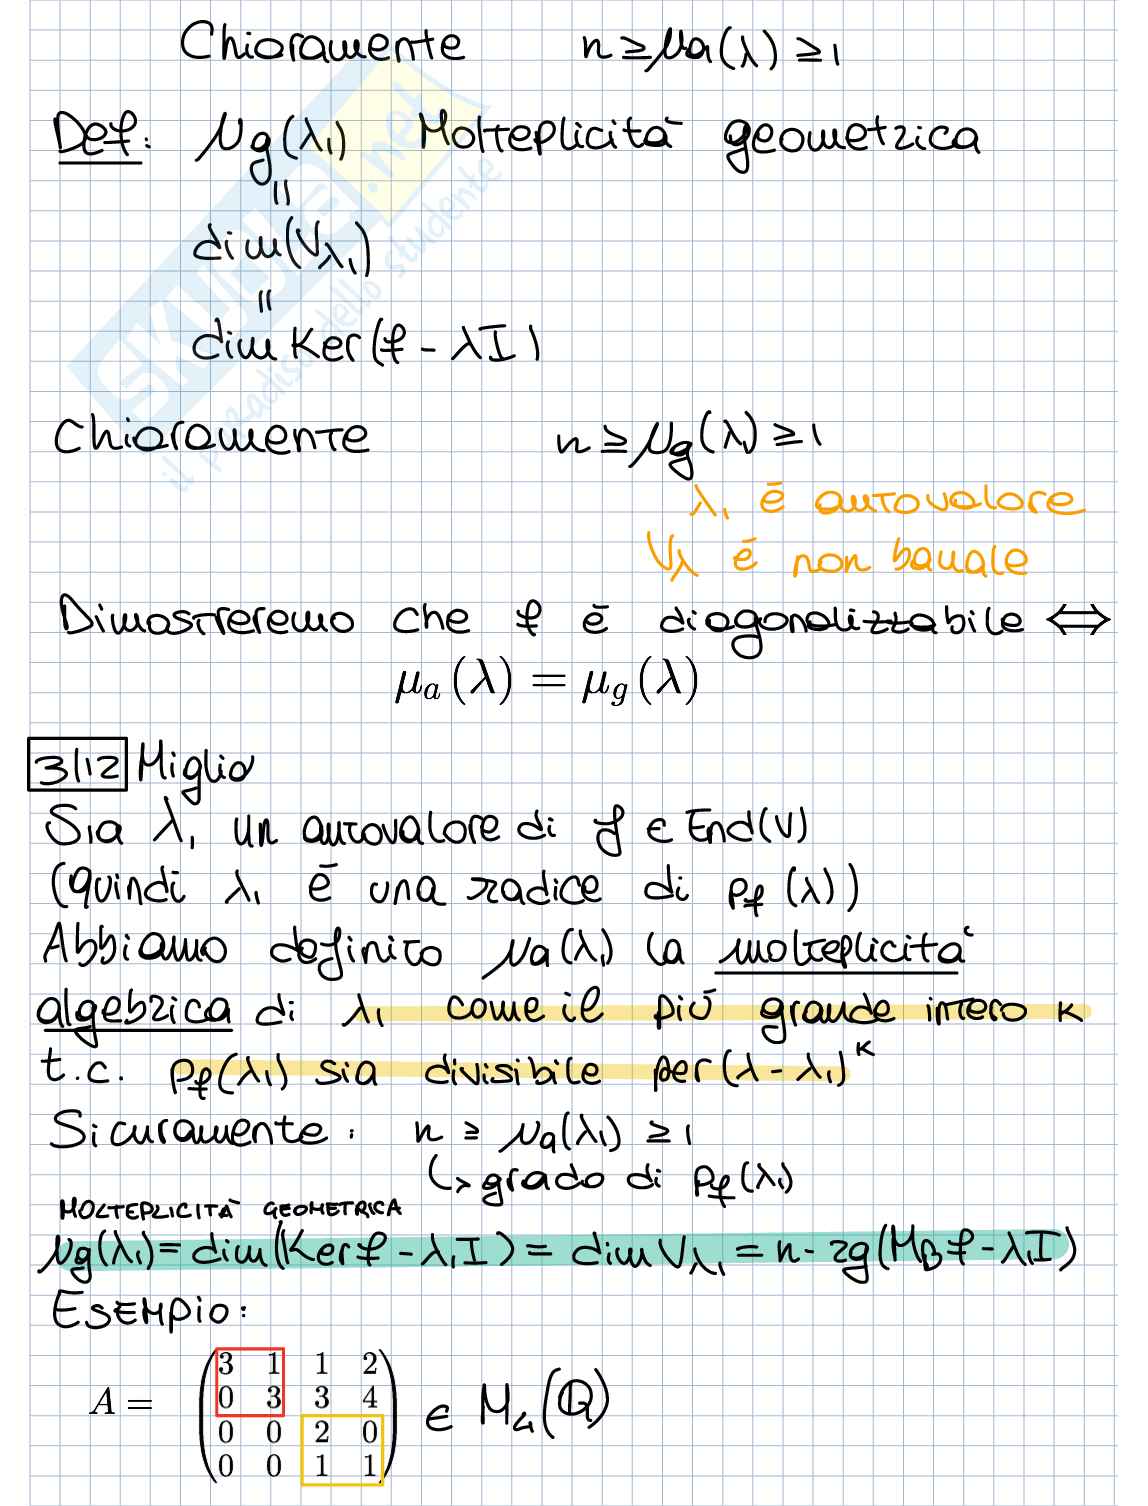 Chiaramente n ≥ μa(λ) ≥ 1
Def: μg(λ₁) Molteplicità geometrica
=
dim(Vλ₁)
=
dim Ker(f - λI)
Chiaramente n ≥ μg(λ) ≥ 1
λ₁ è autovalore
Vλ è non banale
Dimostreremo che f è diagonalizzabile ⇔
μa(λ) = μg(λ)
3/12 Miglio
Sia λ₁ un autovalore di f ∈ End(V)
(quindi λ₁ è una radice di pf(λ))
Abbiamo definito μa(λ₁) la molteplicità
algebrica di λ₁ come il più grande intero K
t.c. pf(λ₁) sia divisibile per (λ - λ₁)ᴷ
Sicuramente: n ≥ μa(λ₁) ≥ 1
↳ grado di pf(λ)
MOLTEPLICITÀ GEOMETRICA
μg(λ₁) = dim(Ker f - λ₁I) = dim Vλ₁ = n - rg(MB f - λ₁I)
ESEMPIO:
A = (3 1 1 2
0 3 3 4
0 0 2 0
0 0 1 1) ∈ M₄(ℚ)
SKUOLA.net
il paradiso dello studente